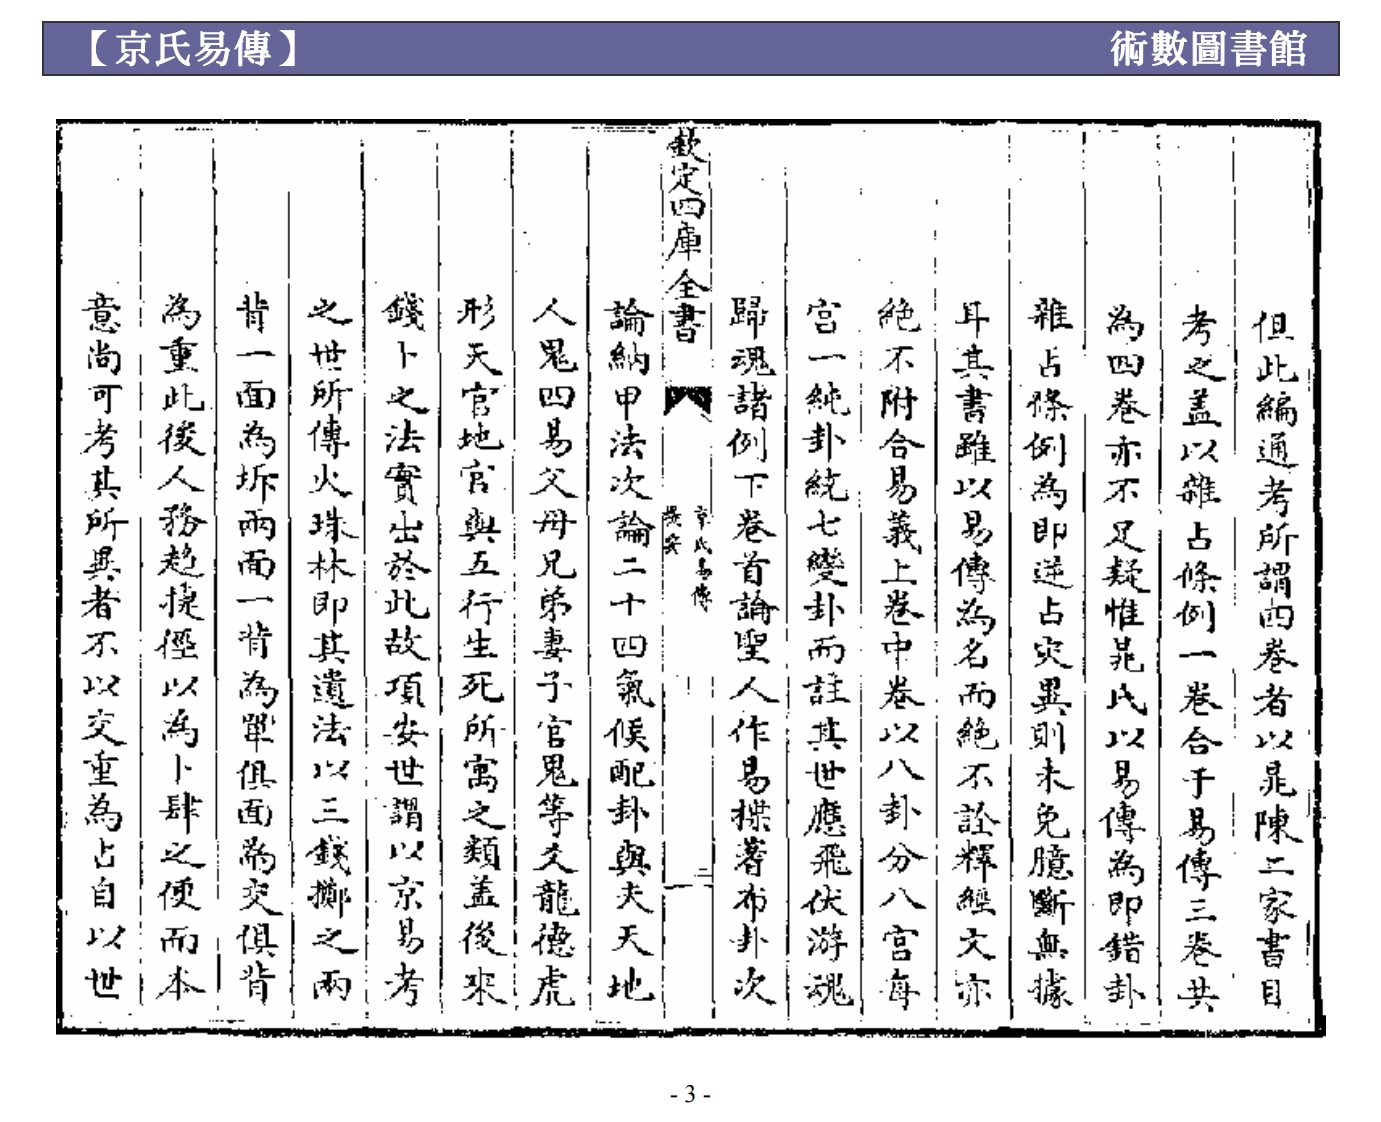 【京氏易傳】
術數圖書館
但此編通考所謂四卷者以晁陳二家書目
考之盖以雜占條例一卷合于易傳三卷共
為四卷亦不足疑惟晁氏以易傳為即錯卦
雜占條例為即逆占灾異則未免臆斷無據
耳其書雖以易傳為名而絶不詮釋經文亦
絶不附合易義上卷中卷以八卦分八宫每
宫一純卦統七變卦而註其世應飛伏游魂
歸魂諸例下卷首論聖人作易揲蓍布卦次
欽定四庫全書
京氏易傳
提要
二
論納甲法次論二十四氣候配卦與夫天地
人鬼四易父母兄弟妻子官鬼等爻龍德虎
形天官地官與五行生死所寓之類盖後來
錢卜之法實出於此故項安世謂以京易考
之世所傳火珠林即其遺法以三錢擲之兩
背一面為坼兩面一背為單俱面為交俱背
為重此後人務趋捷徑以為卜肆之便而本
意尚可考其所異者不以交重為占自以世
- 3 -